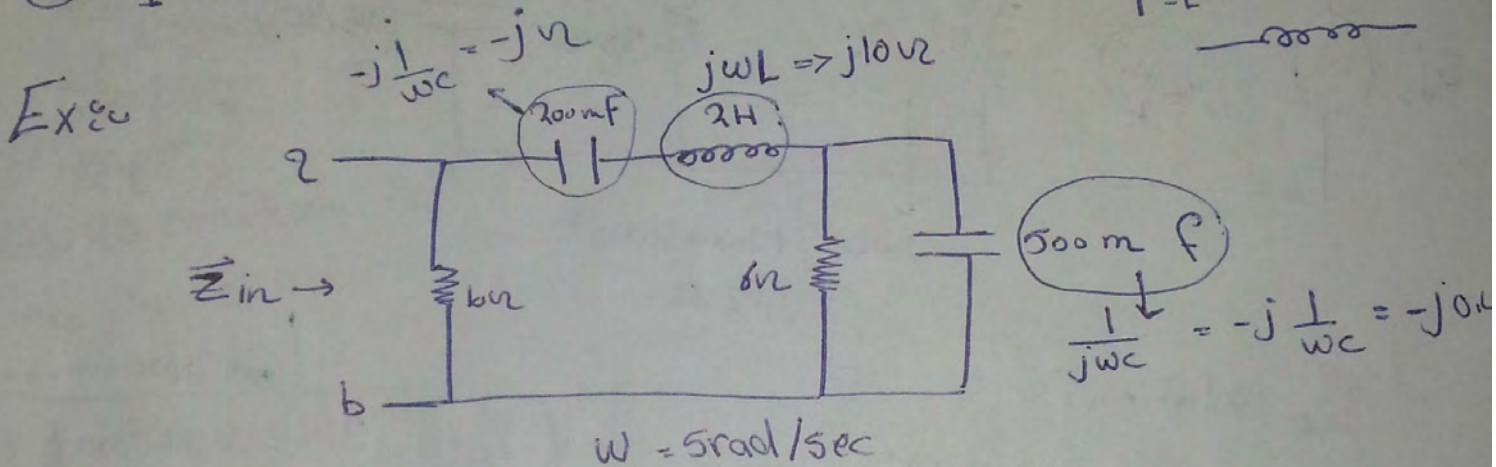 -j 1/wc = -jΩ
jwL => j10Ω
Ex:
200mf
2H
a
Zin →
6Ω
6Ω
500m f
1/jwc = -j 1/wc = -j0.4
b
w = 5rad/sec